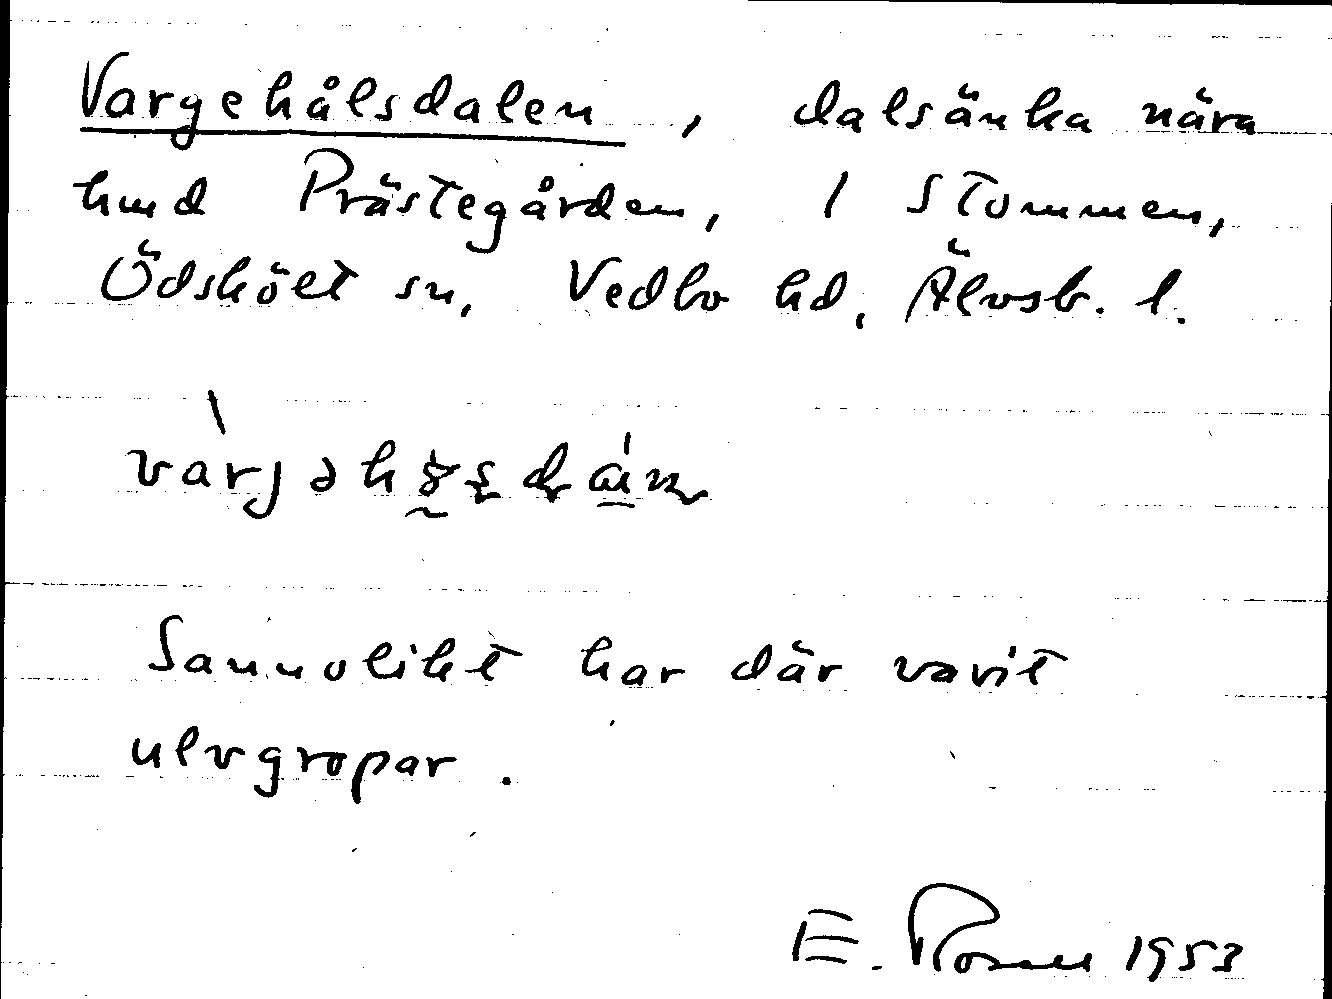 Vargehålsdalen, dalsänka nära
hmd Prästegården, 1 Stommen,
Ödskölt sn, Vedbo hd, Älvsb. l.
Sannolikt har där varit
ulvgropar.
E. 1953